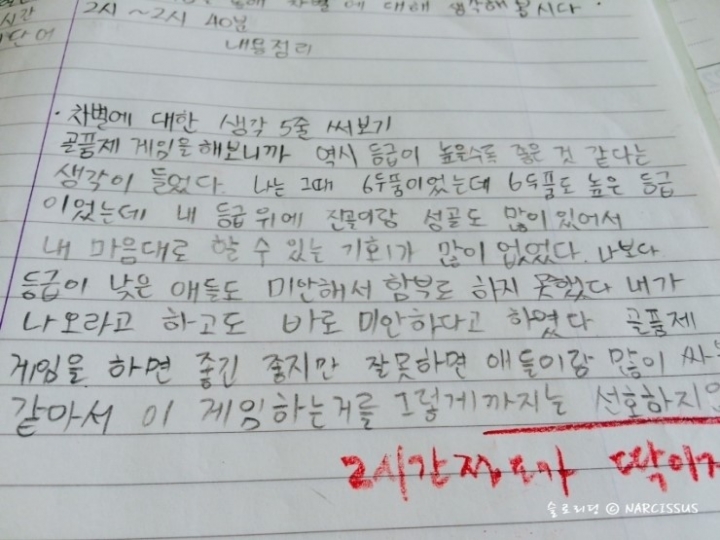 시간
2시~2시 40분
에 대해 생각해 봅시다.
단어
내용정리
· 차별에 대한 생각 5줄 써보기
골품제 게임을 해보니까 역시 등급이 높을수록 좋은 것 같다는
생각이 들었다. 나는 그때 6두품이었는데 6두품도 높은 등급
이었는데 내 등급 위에 진골이랑 성골도 많이 있어서
내 마음대로 할 수 있는 기회가 많이 없었다. 나보다
등급이 낮은 애들도 미안해서 함부로 하지 못했다 내가
나오라고 하고도 바로 미안하다고 하였다 골품제
게임을 하면 좋긴 좋지만 잘못하면 애들이랑 많이 싸
같아서 이 게임하는거를 그렇게까지는 선호하지
2시간 정도가 딱이
솔로리딩 © NARCISSUS